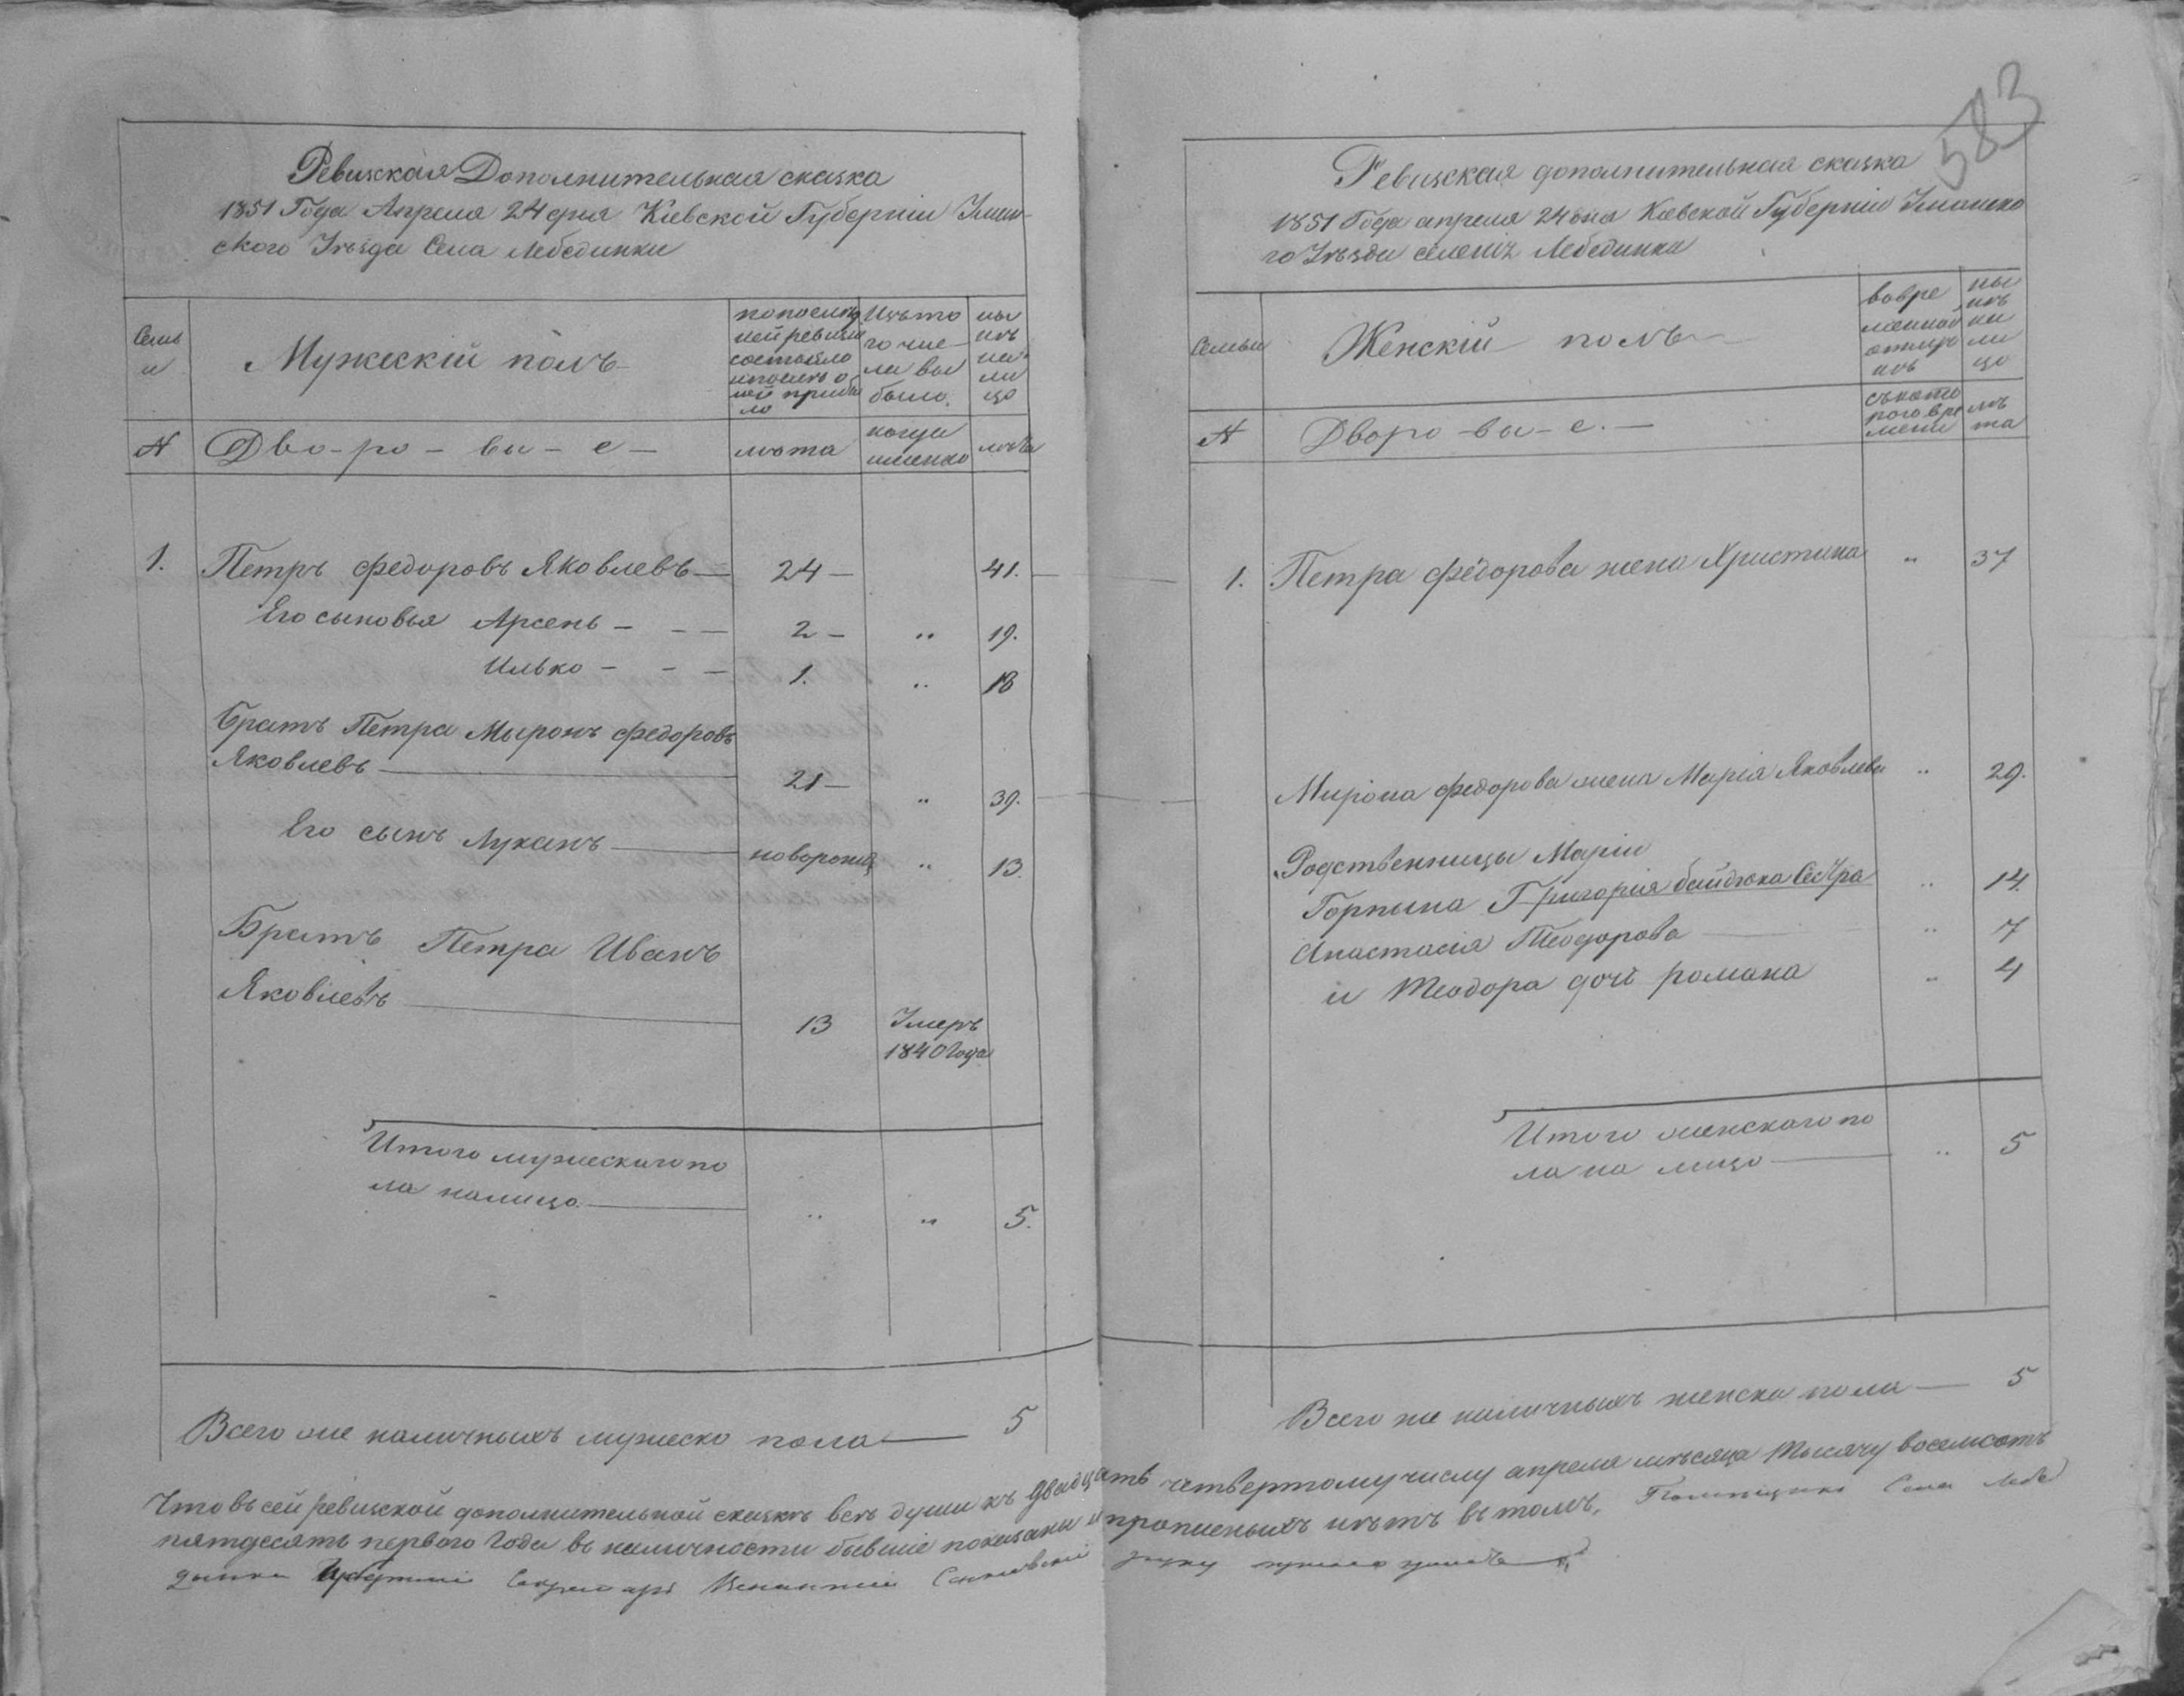 Ревизская Дополнительная сказка
1851 Года Апреля 24 дня Кіевской Губерніи Уман-
ского Уѣзда Села Лебединки
Семьи
Мужескій полъ
по послѣд
ней ревизіи
состояло
и послѣ о
ной прибы
ло
Изъ то
го чис
ла вы
было.
ны
нѣ
на
ли
цо
№
Дво-ро-вы-е-
лѣта
когда
именно
лѣта
1.
Петръ Федоровъ Яковлевъ— 24— 41.
Его сыновья Арсень - - — 2- " 19.
Илько - - — 1. " 18
Братъ Петра Мыронъ Федоровъ
Яковлевъ — 21— " 39.
Его сынъ Луканъ — новорожд " 13.
Братъ Петра Иванъ
Яковлевъ — 13 Умеръ
1840 Года
Итого мужескаго по
ла налицо — " " 5.
Всего же наличныхъ мужеско пола — 5
583
Ревизская дополнительная сказка
1851 Года апреля 24 дня Кіевской Губерніи Уманско
го Уѣзда селеніѣ Лебединки
Семьи
Женскій полъ
вовре
менной
отлуч
кѣ
ны
нѣ
на
ли
цо
№
Дворо-вы-е.—
съ кото
рого вре
мени
лѣ
та
1. Петра Федорова жена Христина " 37
Мирона Федорова жена Марія Яковлева " 29.
Родственницы Маріи
Горпына Григорія байдюка Сестра " 14.
Анастасія Теодорова — " 7
и Теодора дочь романа " 4
Итого женскаго по
ла на лицо — " 5
Всего же наличныхъ женска пола — 5
Что въ сей ревизской дополнительной сказкѣ всѣ души къ двадцать четвертому числу апреля мѣсяца тысячу восемсотъ
пятдесятъ перваго Года въ наличности бывшіе показаны и прописныхъ нѣтъ въ томъ, Помѣщикъ Села Лебе
динки Секретарь руку приложилъ